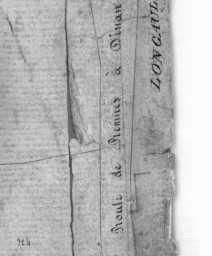 Route de Rennes à Dinan
LONGAU